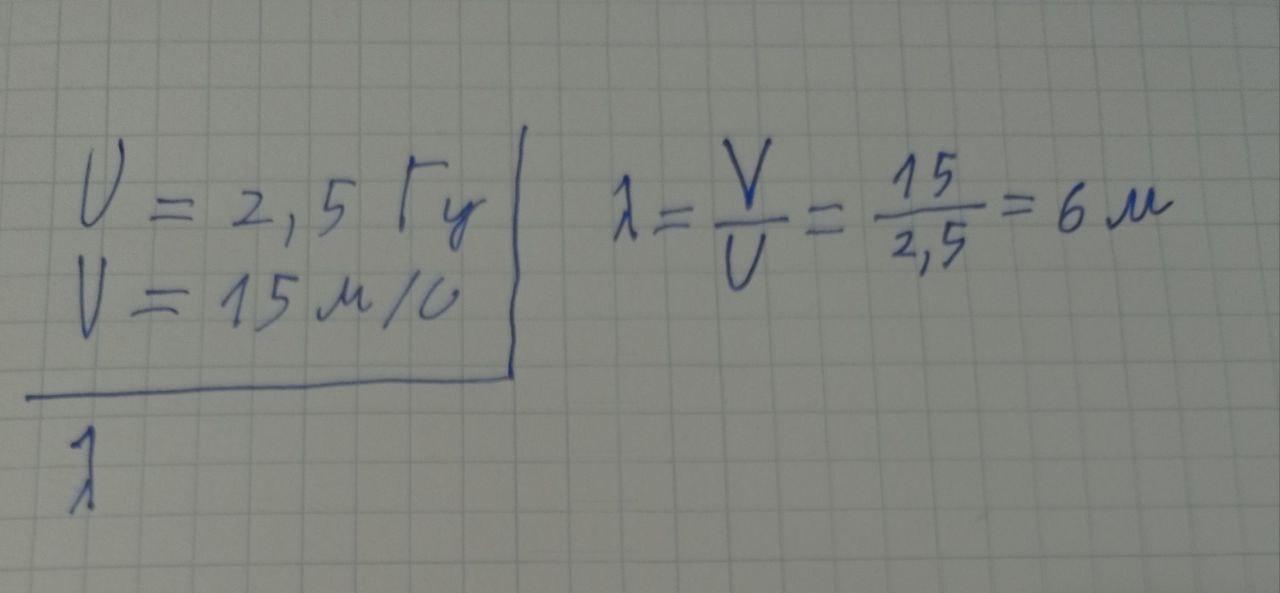 υ = 2,5 Гц
V = 15 м/с
λ
λ = V/υ = 15/2,5 = 6 м